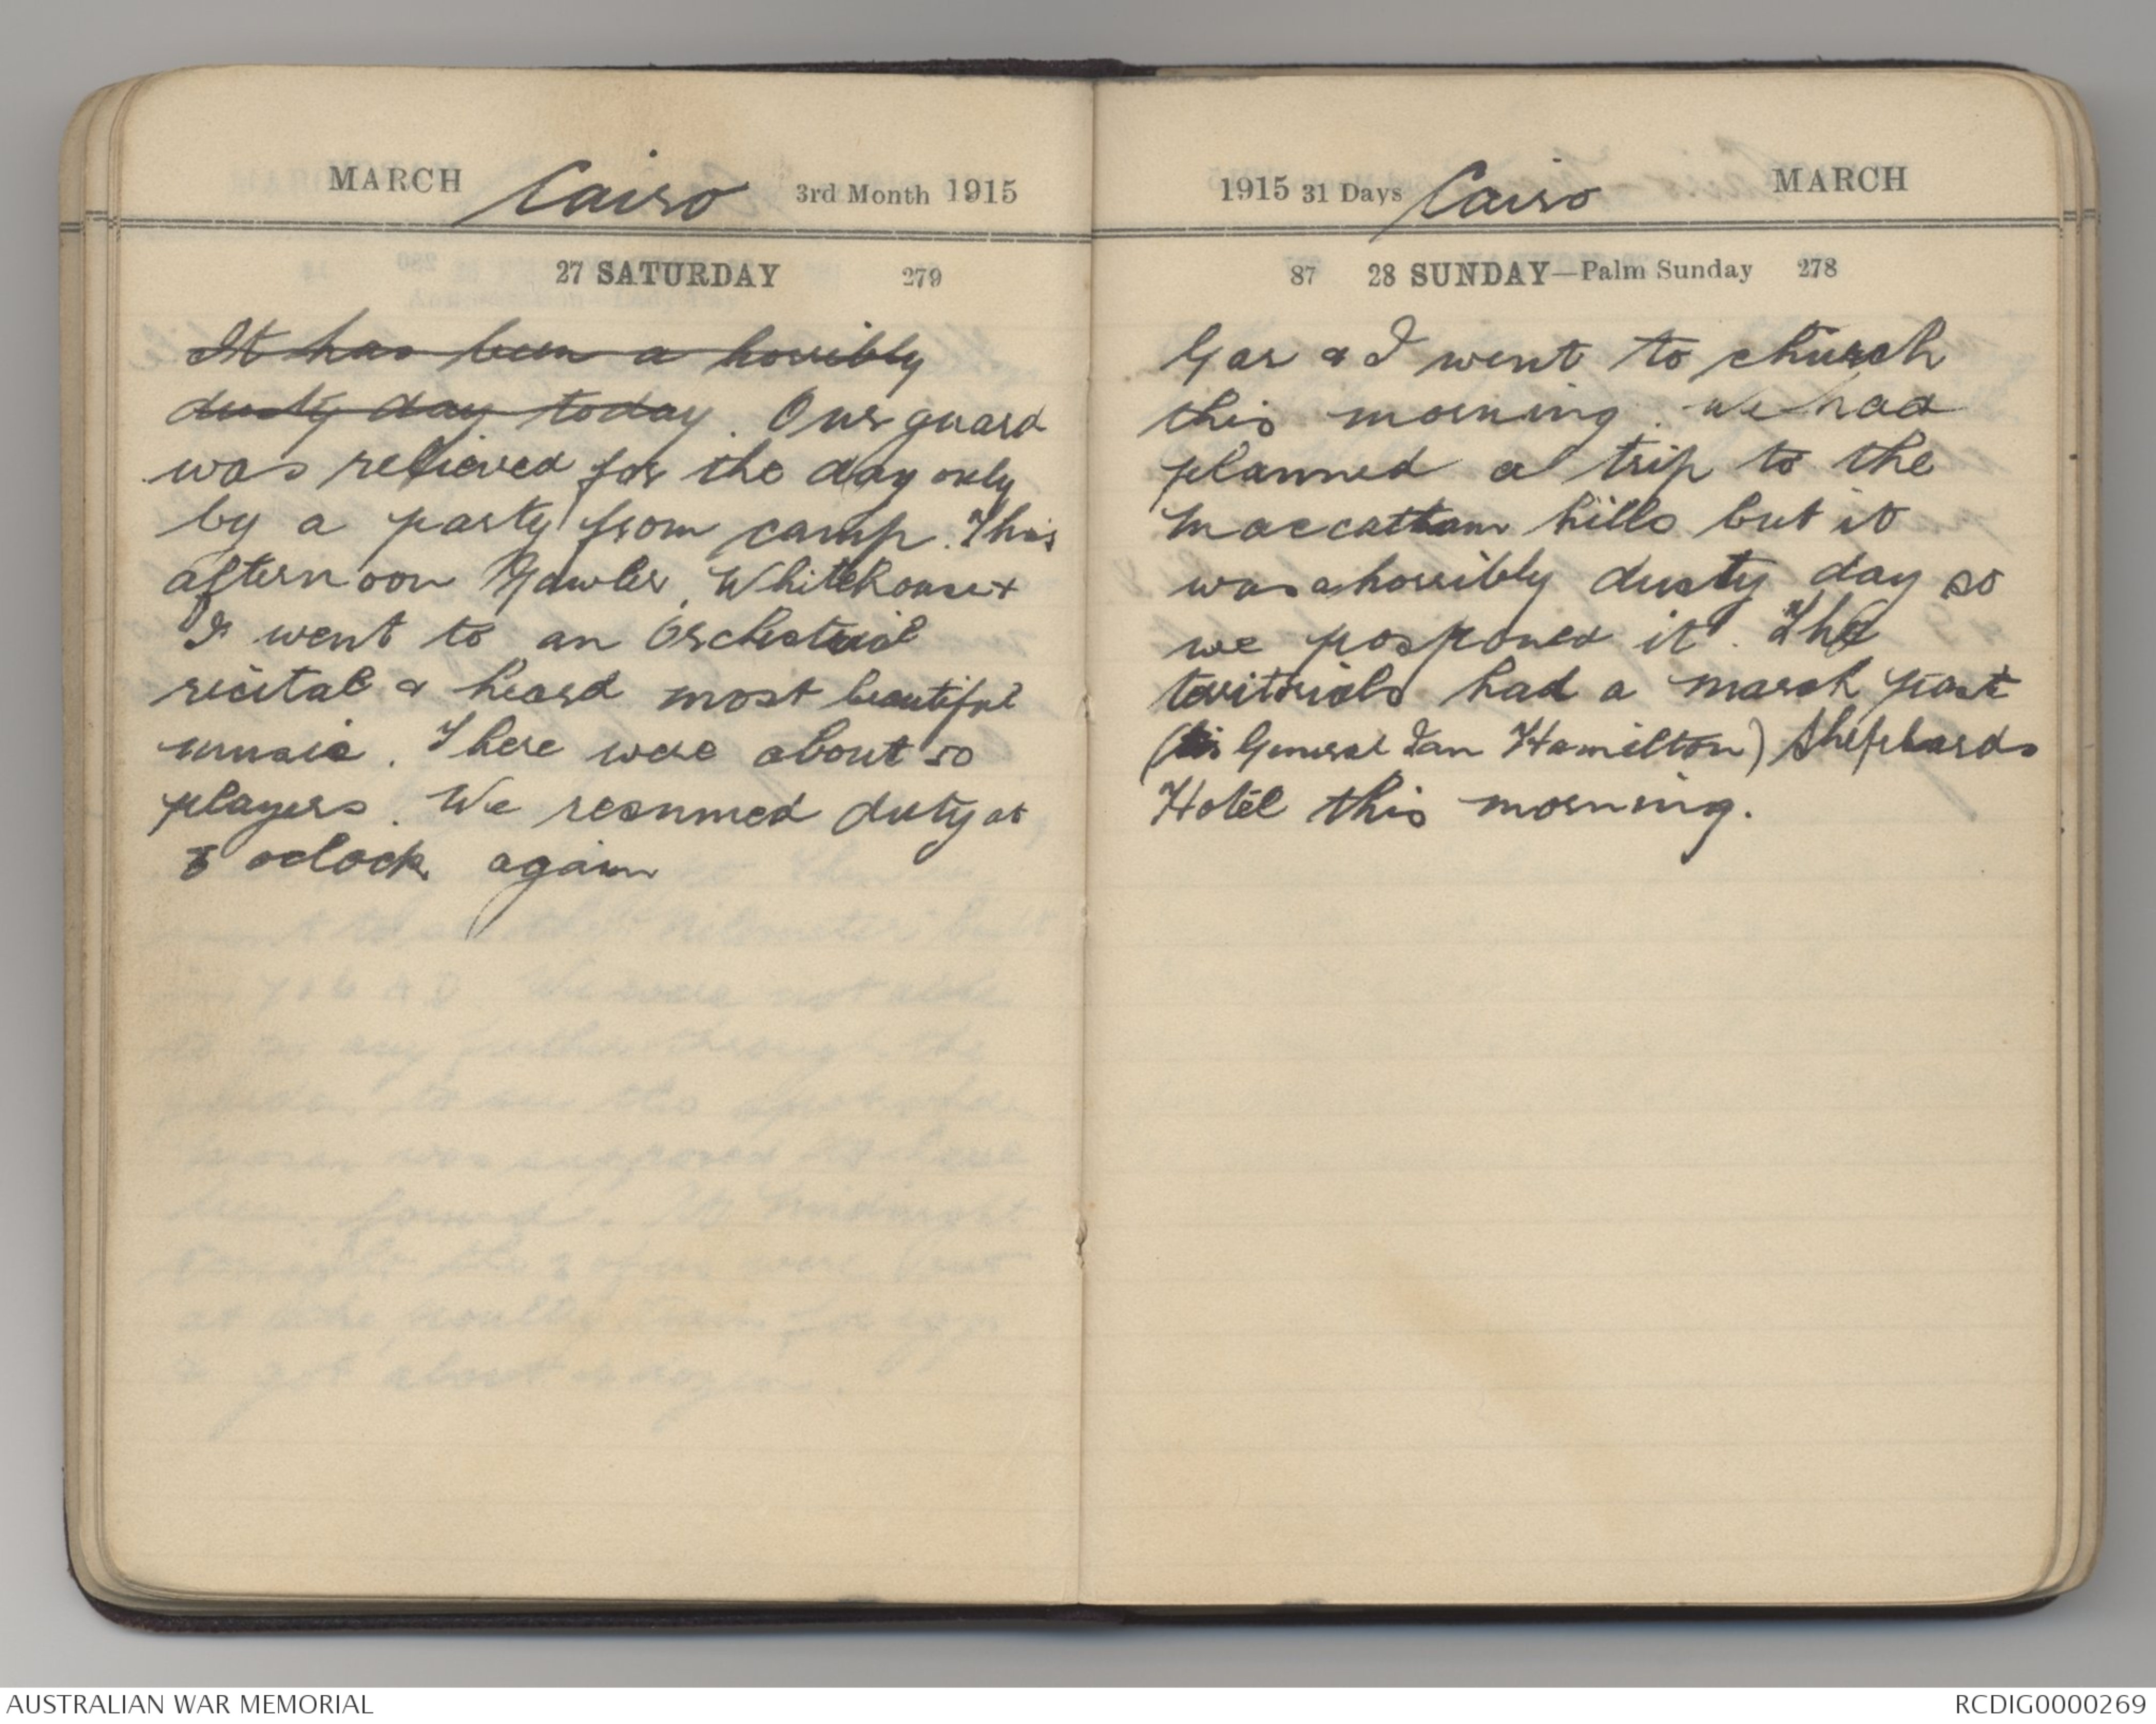 MARCH Cairo 3rd Month 1915
27 SATURDAY 279
It has been a horribly
dusty day today. Our guard
was relieved for the day only
by a party from camp. This
afternoon Gawler, Whitehouse +
I went to an Orchestral
recital & heard most beautiful
music. There were about 50
players. We resumed duty at
8 oclock again
1915 31 Days Cairo MARCH
87 28 SUNDAY—Palm Sunday 278
Gar & I went to church
this morning. We had
planned a trip to the
Maccattam hills but it
was a horribly dusty day so
we posponed it. The
territorials had a march past
(Sir General Ian Hamilton) Shephards
Hotel this morning.
AUSTRALIAN WAR MEMORIAL
RCDIG0000269